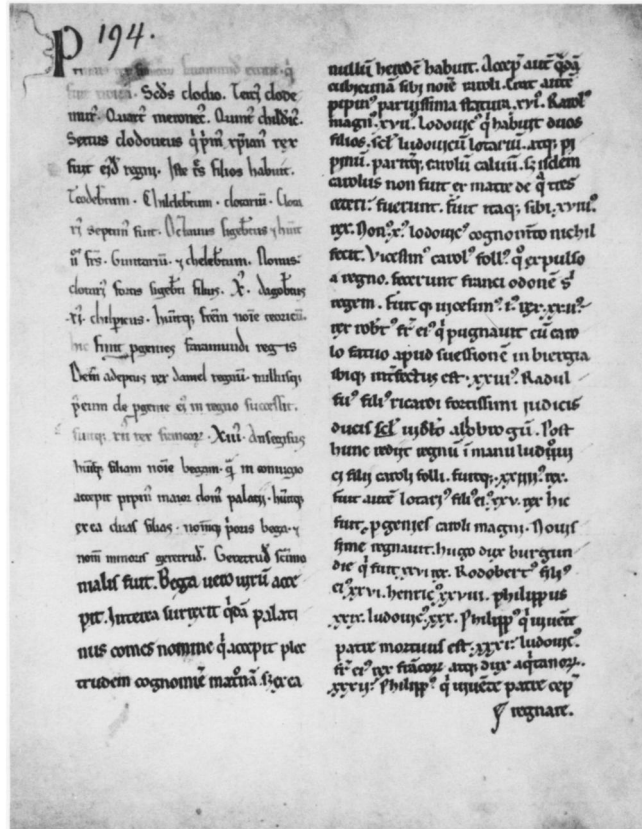 194.
P
fuit . Scds clodio . Terci clode
mir̄ . Quart̄ merouec̄ . Quint̄ childic̄ .
Sextus clodoueus q̇ p̄m xp̄ian rex
fuit ei⁹d regni . Iste t̄s filios habuit .
Teodebtum . Childebtum . clotariū . Clota
ri septim⁹ fuit . Octauus sigebtus ⁊ huit
ii frs . Guntariū . ⁊ chelebtum . Nonus :
clotari⁹ sigebti filius . X⁹ . dagobtus
xi⁹ chilpicus . huitq; frēm noīe teoricū .
hic finit pgenies faramundi regis
Dein adeptus rex daniel regnū . nullusq;
p̄ eum de pgenie ei⁹ in regno successit .
fuitq; xii rex francoꝝ . Xiii⁹ Ansegisus
huitq; filiam noīe begam . q̄ in coniugio
accepit pipin⁹ maior dom⁹ palacii . huitq;
ex ea duas filias . nomq; p̄oris bega . ⁊
nom̄ minoris gertrud̄ . Gertrud̄ sc̄imo
nialis fuit . Bega uero uirū acce
pit . Interea surrexit q̇dā palati
nus comes nomine q̇ accepit plec
trudem cognomīe matronā . sʒ ex ea
nullū heredē habuit . Accep̄ aut̄ q̄dā
cubicunā sibi noīe . Erat aute
pipin⁹ paruissima statura . xvi⁹ . Karol⁹
magn⁹ . xvii⁹ . Lodouic⁹ q̇ habuit duos
filios . scł ludouicū lotariū . atq; pi
pinū . paritq; carolū caluū . sʒ isdem
carolus non fuit ex matre de q̄ tres
ceteri⁹ fuerunt . fuit itaq; sibi . xviii⁹
rex . Non⁹ x⁹ lodouic⁹ cognomto nichil
fecit . Vicesim⁹ carol⁹ foll⁹ q̇ expulso
a regno . fecerunt franci odonē s̄
regem . fuit q; uicesim⁹ i⁹ rex . xxii⁹
rex robt⁹ fr̄ ei⁹ q̇ pugnauit cū caro
lo fatuo apud suessionē in biergia
ibiq; int̄fectus est . xxiii⁹ . Radul
fu⁹ fili⁹ ricardi fortissimi iudicis
ducis scł allobrogū . Post
hunc rediit regnū ī manu ludouu
ci filii caroli folli . fuitq; xxiiii⁹ rex .
fuit aute lotari⁹ fili⁹ ei⁹ . xxv . rex hic
fuit . pgenies caroli magni . Nouis
sime regnauit . hugo dux burgun
die q̇ fuit xxvi rex . Rodobert⁹ fili⁹
ei⁹ xxvi . henric⁹ xxviii . philippus
xxix . ludouic⁹ . xxx . Philipp⁹ q̇ uiuēte
patre mortuus est . xxxi⁹ ludouic⁹ .
fr̄ ei⁹ rex francoꝝ . atq; dux aq̄tanoꝝ .
xxxii⁹ philipp⁹ q̇ uiuēte patre cep̄
regnare .